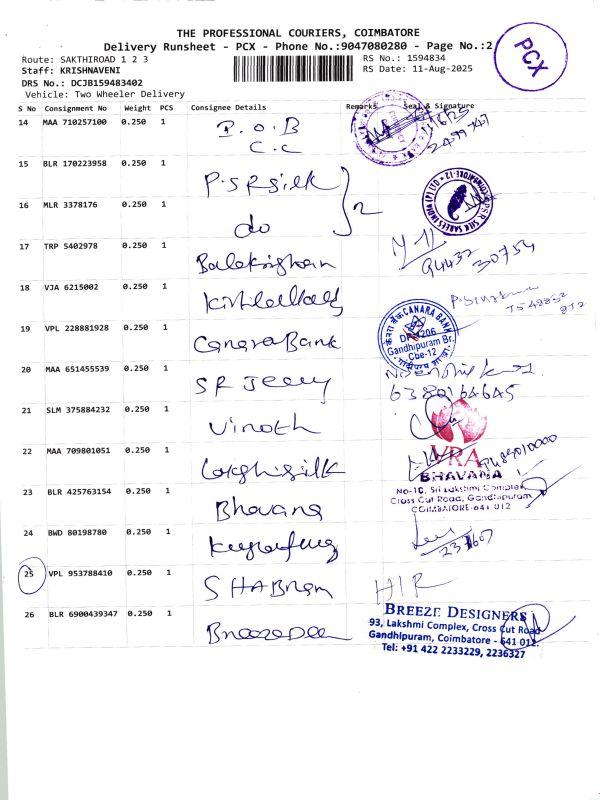 THE PROFESSIONAL COURIERS, COIMBATORE
Delivery Runsheet - PCX - Phone No.:9047080280 - Page No.:2
Route: SAKTHIROAD 1 2 3
RS No.: 1594834
Staff: KRISHNAVENI
RS Date: 11-Aug-2025
DRS No.: DCJB159483402
Vehicle: Two Wheeler Delivery
PCX
S No Consignment No Weight PCS Consignee Details Remarks Seal & Signature
14 MAA 710257100 0.250 1 I.O.B
C.C
15 BLR 170223958 0.250 1 P.S.R silk
16 MLR 3378176 0.250 1 do
2
17 TRP 5402978 0.250 1
94432 30754
18 VJA 6215002 0.250 1
19 VPL 228881928 0.250 1 Canara Bank
CANARA BANK
Gandhipuram Br.
Cbe-12
20 MAA 651455539 0.250 1 SR
6380164645
21 SLM 375884232 0.250 1 Vinoth
22 MAA 709801051 0.250 1
VRA
BHAVANA
23 BLR 425763154 0.250 1 Bhavana
No-10, Sri Lakshmi Complex,
Cross Cut Road, Gandhipuram
COIMBATORE-641 012
24 BWD 80198780 0.250 1
25 VPL 953788410 0.250 1
26 BLR 6900439347 0.250 1
BREEZE DESIGNERS
93, Lakshmi Complex, Cross Cut Road
Gandhipuram, Coimbatore - 641 012.
Tel: +91 422 2233229, 2236327